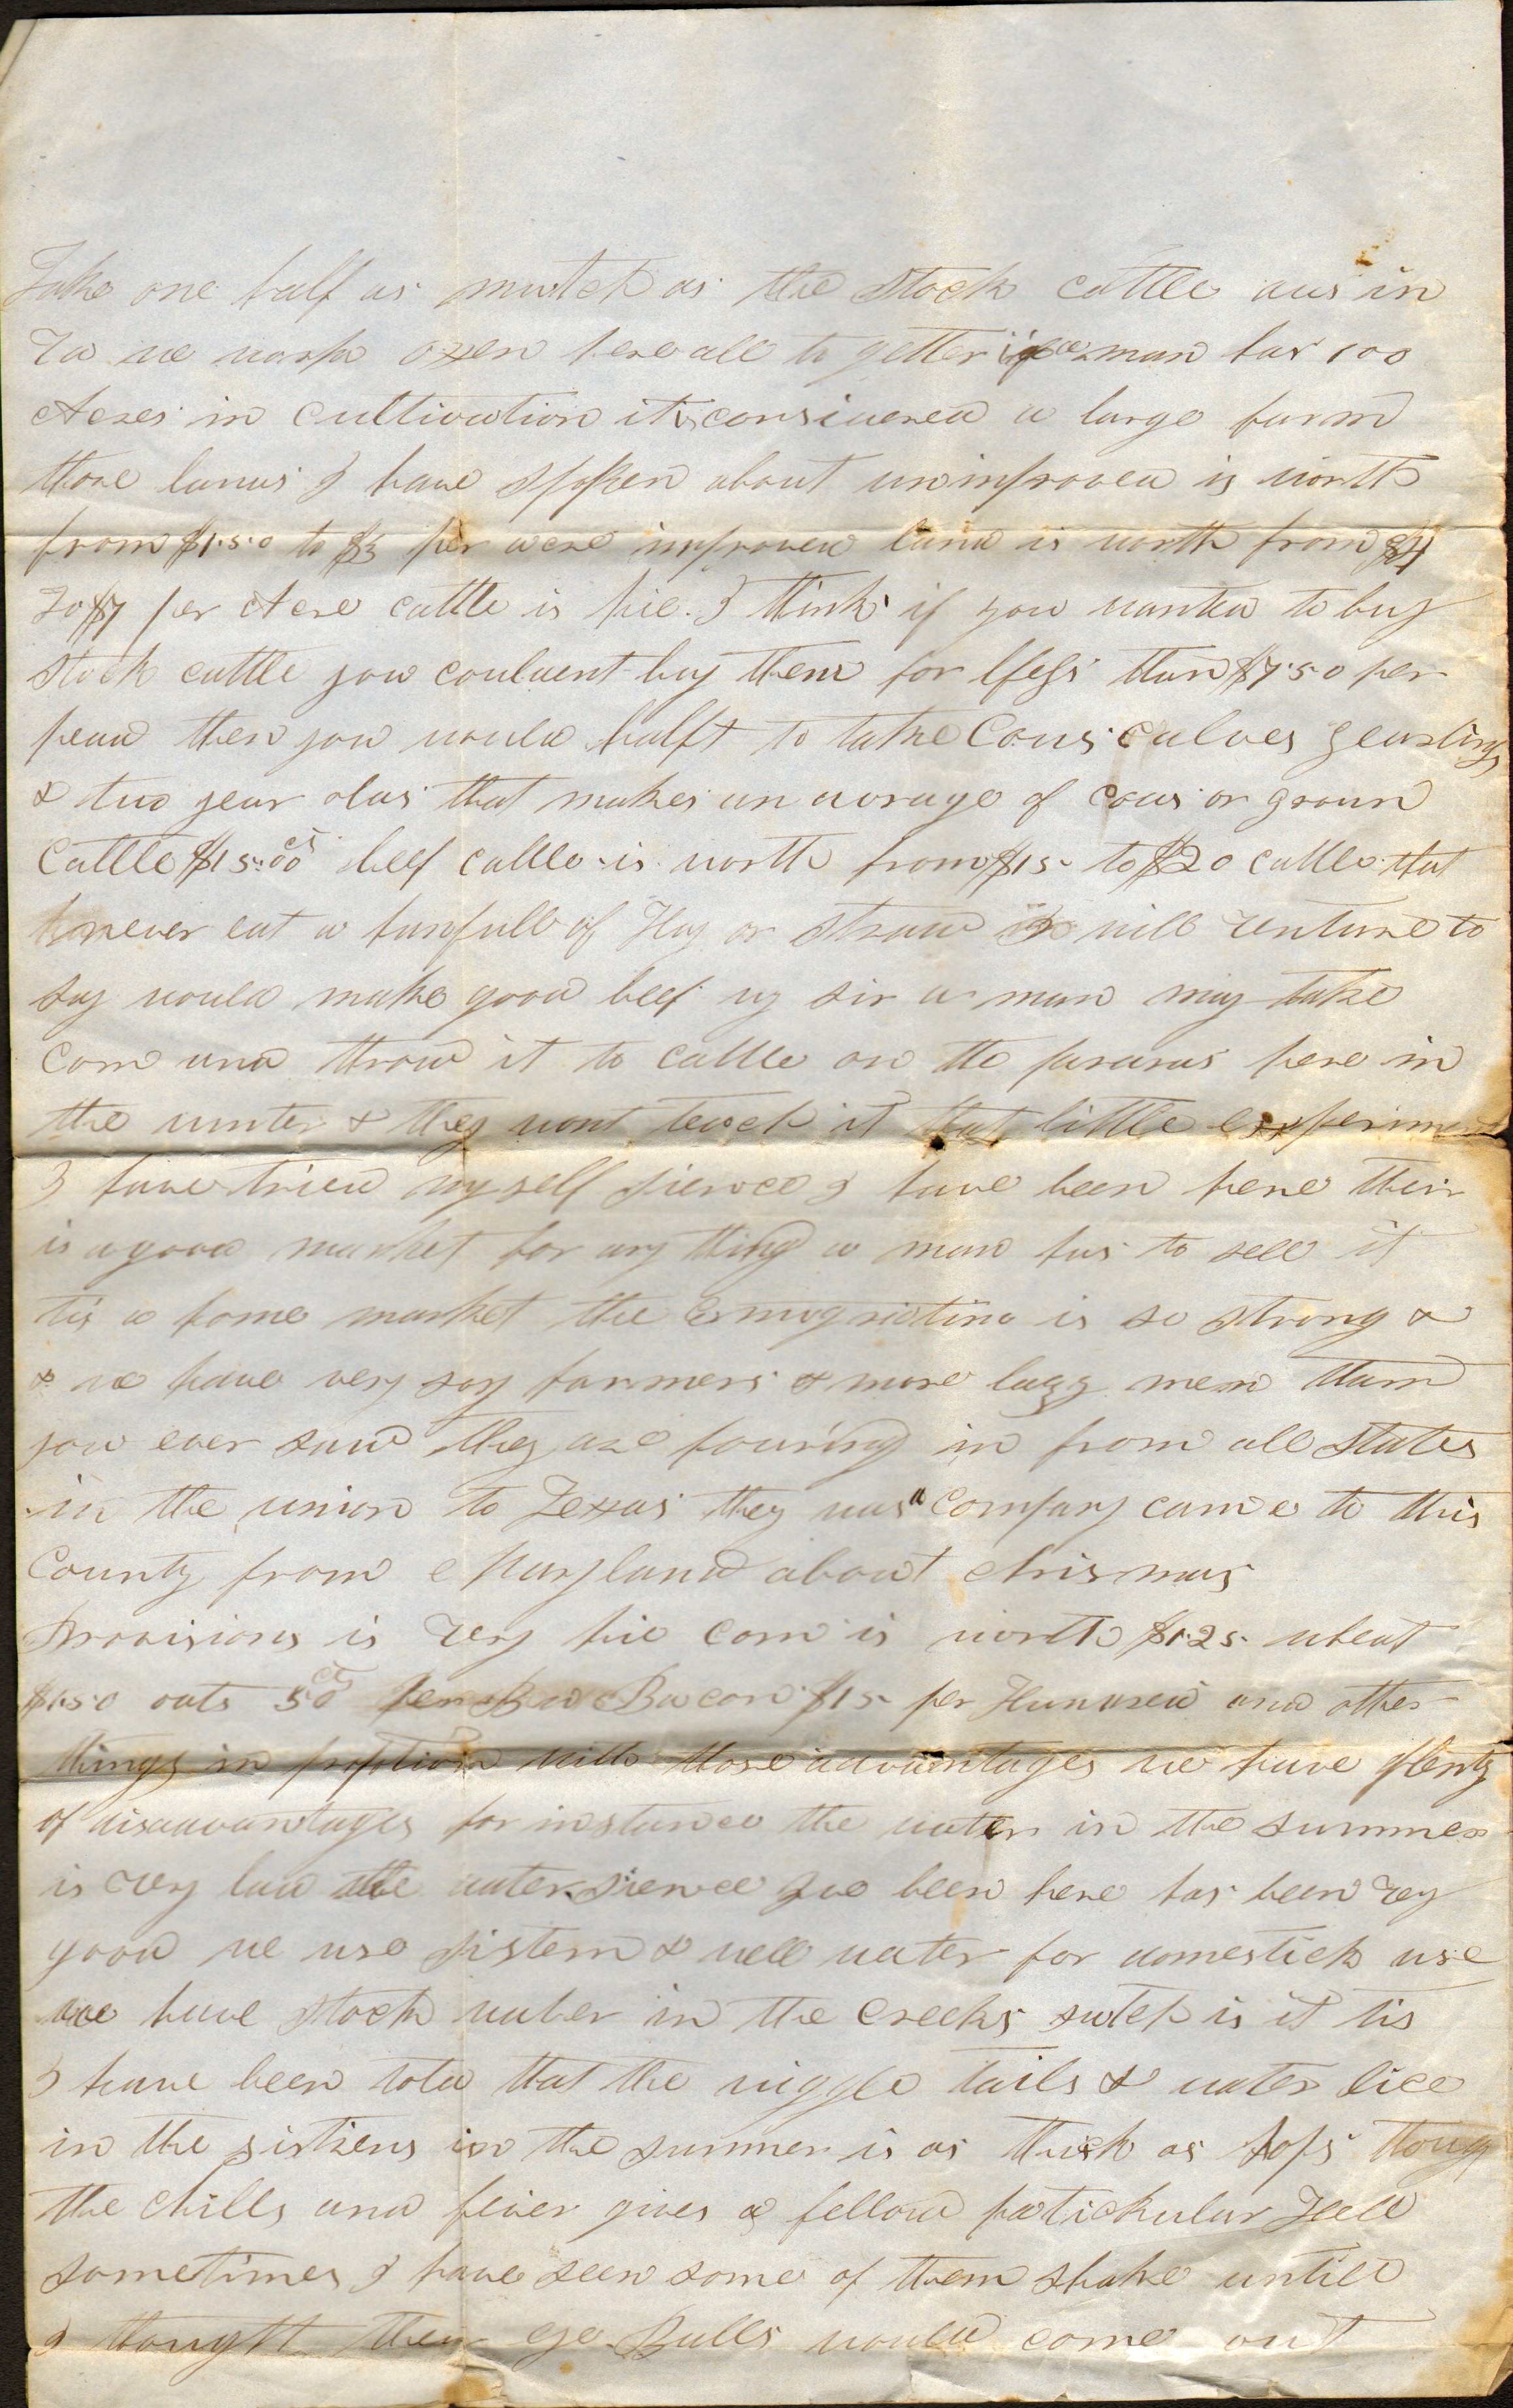 Take one half as mutch as the stock cattle aus in
Va we work oxen here all to gether if a man has 100
Acres in cultivation it is considered a large farm
those lands I have spoken about unimproved is worth
from $1.50 to $3 per acre improved land is worth from $4
To $7 per Acre cattle is hie. I think if you wanted to buy
stock cattle you couldent buy them for less than $7.50 per
head then you would halft to take Cows calves yearlings
& two year olds that makes an avorage of cows or grown
Cattle $15.00 cts beef cattle is worth from $15 to $20 cattle that
never eat a hanfull of Hay or straw I will venture to
say would make good beef my sir a man may take
Corn and throw it to cattle on the praras here in
the winter & they wont teuch it that little experiment
I have tried my self sience I have been here their
is a good market for any thing a man has to sell it
tis a home market the emmigration is so strong &
& we have very sory farmers & more lazy men than
you ever saw they are pouring in from all states
in the union to Texas they was a company came to this
County from Maryland about chrismas
Provisions is very hie corn is worth $1.25 wheat
$1.50 oats 50 cts per Bu Bacon $15 per Hundred and other
things in proption with those advantages we have plenty
of disadvantages for instance the water in the summer
is very bad the water sience Ive been here has been very
good we use sistern & well water for domestick use
we have stock water in the creeks sutch is it tis
I have been told that the wiggle tails & water lice
in the sisterns in the summer is as thick as hops thoug
the chills and fever gives a fellow patickular Hell
sometimes I have seen some of them shake untill
I thought their eye Balls would come out